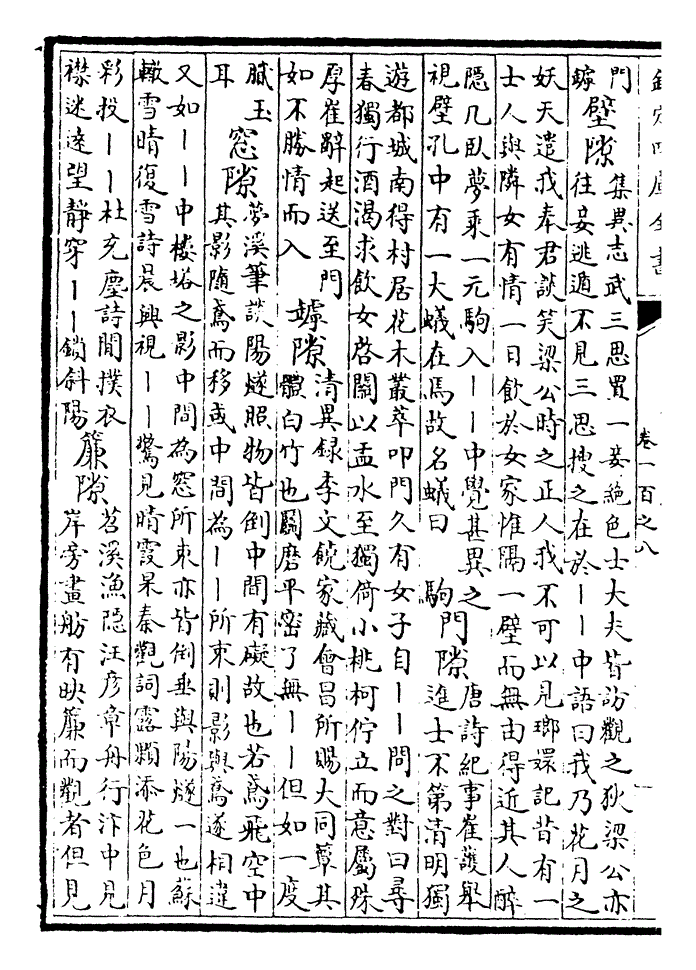 欽定四庫全書
卷一百之八
門
嫁
壁隙
集異志武三思買一妾絶色士大夫皆訪觀之狄梁公亦
往妾逃遁不見三思搜之在於——中語曰我乃花月之
妖天遣我奉君談笑梁公時之正人我不可以見瑯嬛記昔有一
士人與隣女有情一日飲於女家惟隔一壁而無由得近其人醉
隠几臥夢乘一元駒入——中覺甚異之
視壁孔中有一大蟻在焉故名蟻曰駒
門隙
唐詩紀事崔護舉
進士不第清明獨
遊都城南得村居花木叢萃叩門久有女子自——問之對曰尋
春獨行酒渴求飲女啓關以盂水至獨倚小桃柯佇立而意屬殊
厚崔辭起送至門
如不勝情而入
罅隙
清異録李文饒家藏會昌所賜大同簟其
體白竹也鬭磨平密了無——但如一度
膩玉
耳
窓隙
夢溪筆談陽燧照物皆倒中間有礙故也若鳶飛空中
其影隨鳶而移或中間為——所束則影與鳶遂相違
又如——中樓塔之影中間為窓所束亦皆倒垂與陽燧一也蘇
轍雪晴復雪詩晨興視——驚見晴霞杲秦觀詞露顆添花色月
彩投——杜充塵詩間撲衣
襟迷遠望静穿——鎖斜陽
簾隙
苕溪漁隠汪彦章舟行汴中見
岸旁畫舫有映簾而觀者但見